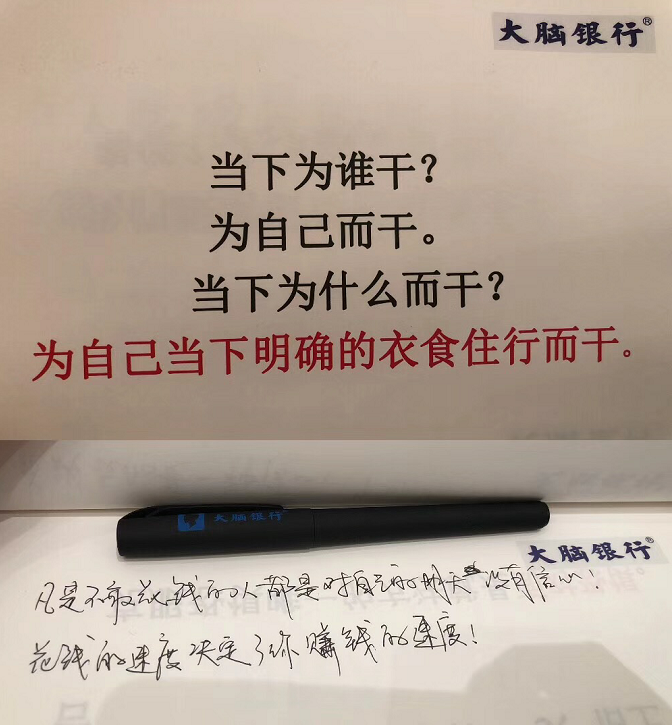 大脑银行®
当下为谁干？
为自己而干。
当下为什么而干？
为自己当下明确的衣食住行而干。
大脑银行
大脑银行®
凡是不敢花钱的人都是对自己的明天没有信心！
花钱的速度决定了你赚钱的速度！